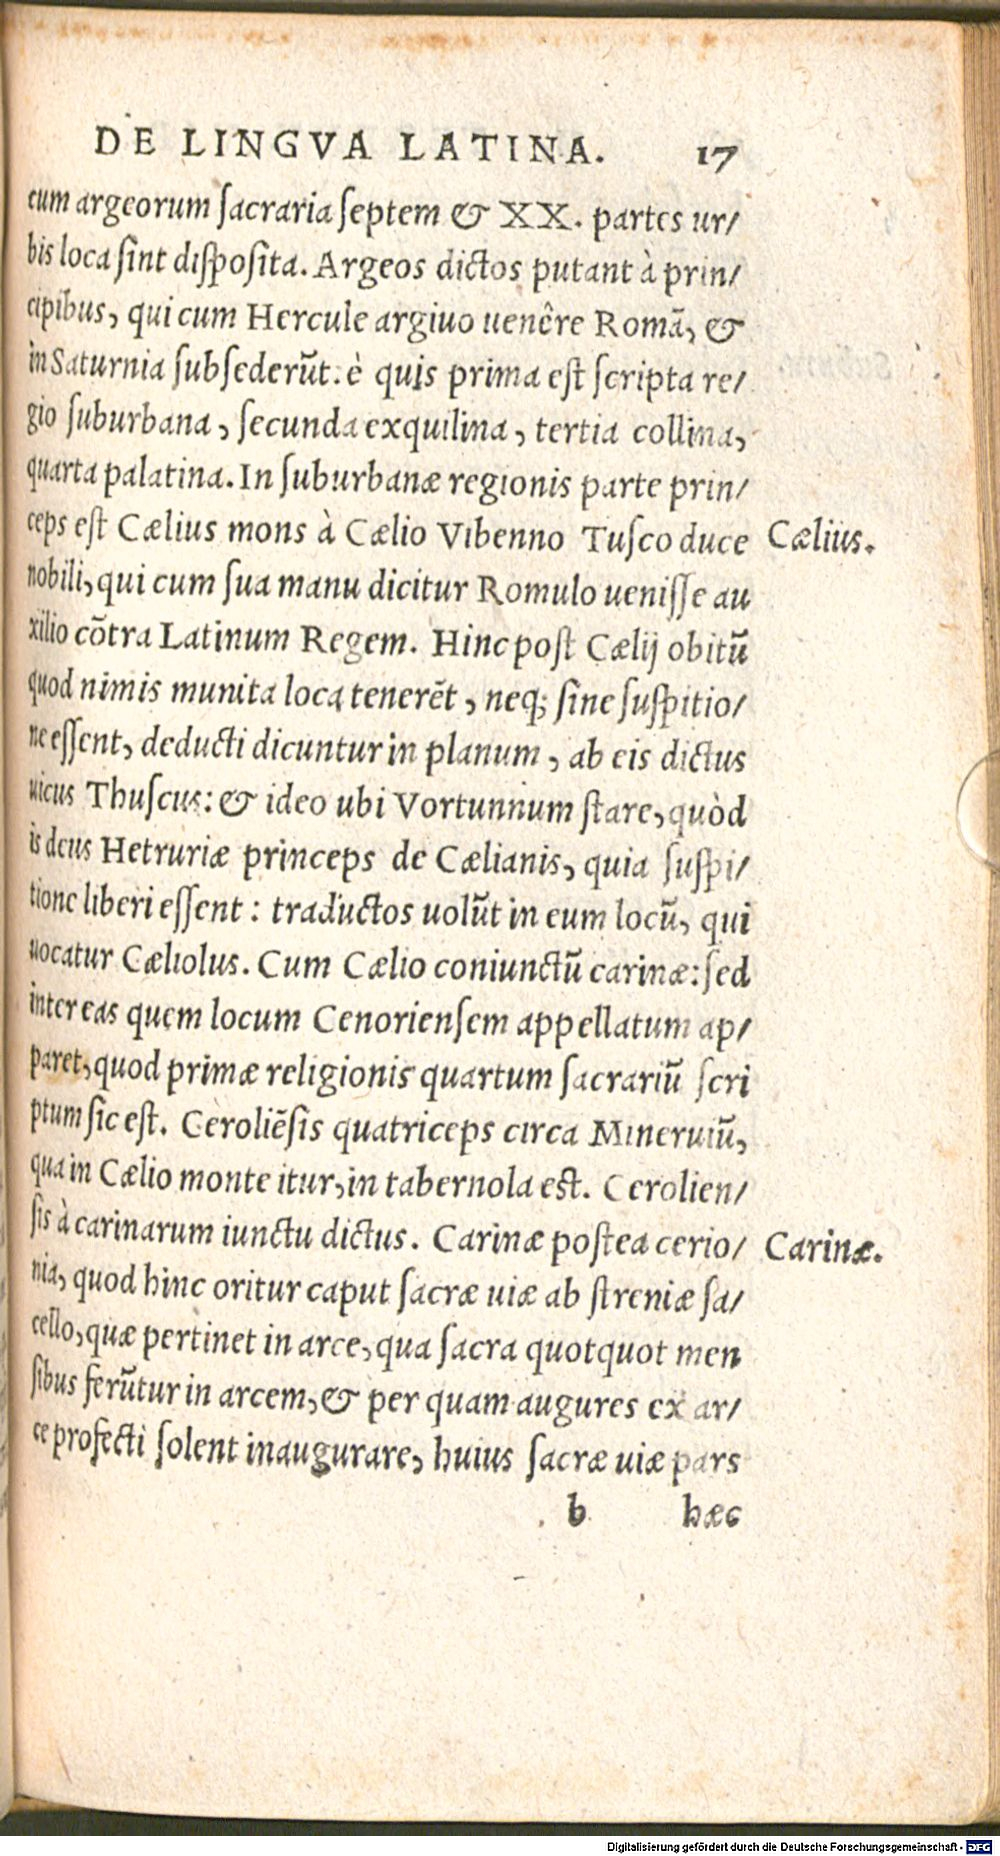 DE LINGVA LATINA. 17
cum argeorum ſacraria ſeptem & XX. partes ur/
bis loca ſint diſpoſita. Argeos dictos putant à prin/
cipibus, qui cum Hercule argiuo uenêre Romã, &
in Saturnia ſubſederũt: è quis prima eſt ſcripta re/
gio ſuburbana, ſecunda exquilina, tertia collina,
quarta palatina. In ſuburbanæ regionis parte prin/
ceps eſt Cælius mons à Cælio Vibenno Tuſco duce
Cælius.
nobili, qui cum ſua manu dicitur Romulo ueniſſe au
xilio cõtra Latinum Regem. Hinc poſt Cælij obitũ
quod nimis munita loca tenerẽt, neq; ſine ſuſpitio/
ne eſſent, deducti dicuntur in planum, ab eis dictus
uicus Thuſcus: & ideo ubi Vortunnum ſtare, quòd
is deus Hetruriæ princeps de Cælianis, quia ſuſpi/
tione liberi eſſent: traductos uolũt in eum locũ, qui
uocatur Cæliolus. Cum Cælio coniunctũ carinæ: ſed
inter eas quem locum Cenorienſem appellatum ap/
paret, quod primæ religionis quartum ſacrariũ ſcri
ptum ſic eſt. Ceroliẽſis quatriceps circa Mineruiũ,
qua in Cælio monte itur, in tabernola eſt. Cerolien/
ſis à carinarum iunctu dictus. Carinæ poſtea cerio/
Carinæ.
nia, quod hinc oritur caput ſacræ uiæ ab ſtreniæ ſa/
cello, quæ pertinet in arce, qua ſacra quotquot men
ſibus ferũtur in arcem, & per quam augures ex ar/
ce profecti ſolent inaugurare, huius ſacræ uiæ pars
b hæc
Digitalisierung gefördert durch die Deutsche Forschungsgemeinschaft - DFG